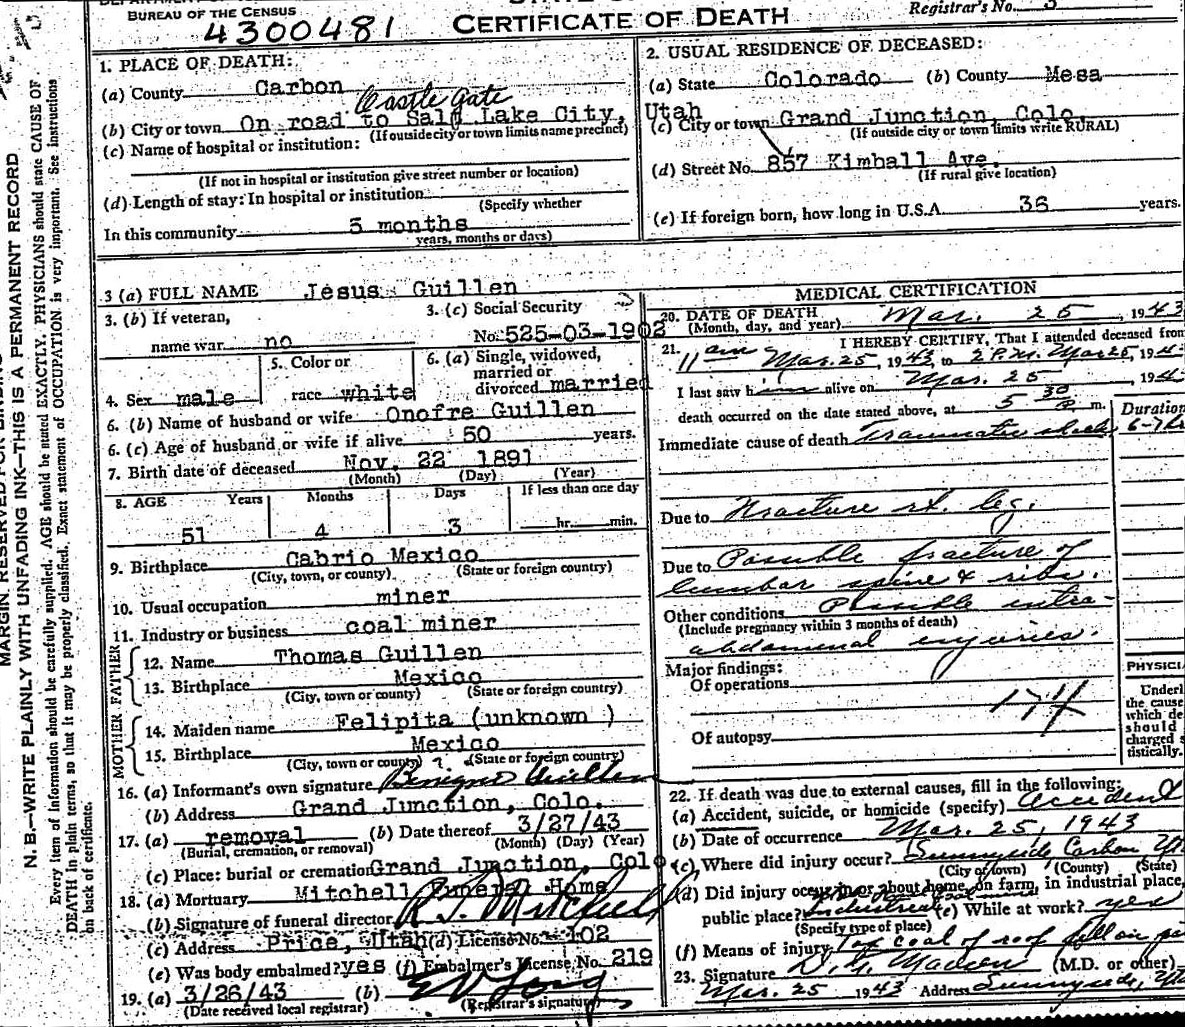 BUREAU OF THE CENSUS
4300481
CERTIFICATE OF DEATH
Registrar's No.
1. PLACE OF DEATH:
(a) County Carbon
Castle Gate
(b) City or town On road to Salt Lake City, Utah
(If outside city or town limits name precinct)
(c) Name of hospital or institution:
(If not in hospital or institution give street number or location)
(d) Length of stay: In hospital or institution
(Specify whether
In this community 5 months
years, months or days)
2. USUAL RESIDENCE OF DECEASED:
(a) State Colorado (b) County Mesa
(c) City or town Grand Junction, Colo.
(If outside city or town limits write RURAL)
(d) Street No. 857 Kimball Ave.
(If rural give location)
(e) If foreign born, how long in U.S.A. 36 years.
3 (a) FULL NAME Jesus Guillen
3. (b) If veteran,
name war no
3. (c) Social Security
No. 525-03-1902
4. Sex male
5. Color or
race white
6. (a) Single, widowed,
married or
divorced married
6. (b) Name of husband or wife Onofre Guillen
6. (c) Age of husband or wife if alive 50 years.
7. Birth date of deceased Nov. 22 1891
(Month) (Day) (Year)
8. AGE Years Months Days If less than one day
51 4 3 hr. min.
9. Birthplace Cabrio Mexico
(City, town, or county) (State or foreign country)
10. Usual occupation miner
11. Industry or business coal miner
FATHER
12. Name Thomas Guillen
13. Birthplace Mexico
(City, town or county) (State or foreign country)
MOTHER
14. Maiden name Felipita (unknown )
15. Birthplace Mexico
(City, town or county) (State or foreign country)
16. (a) Informant's own signature Benigno Guillen
(b) Address Grand Junction, Colo.
17. (a) removal (b) Date thereof 3/27/43
(Burial, cremation, or removal) (Month) (Day) (Year)
(c) Place: burial or cremation Grand Junction, Colo
18. (a) Mortuary Mitchell Funeral Home
(b) Signature of funeral director R J Mitchell
(c) Address Price, Utah (d) License No. 102
(e) Was body embalmed? yes (f) Embalmer's License No. 219
19. (a) 3/26/43 (b)
(Date received local registrar) (Registrar's signature)
MEDICAL CERTIFICATION
20. DATE OF DEATH Mar. 25, 1943
(Month, day, and year)
21. I HEREBY CERTIFY, That I attended deceased from
11 am Mar. 25, 1943, to 2 P.M. Mar 25, 194
I last saw him alive on Mar. 25 194
death occurred on the date stated above, at 5 30 P m.
Duration
Immediate cause of death Traumatic shock 6-7 hr
Due to Fracture rt. leg.
Due to Possible fracture of
lumbar spine & ribs.
Other conditions Possible intra-
(Include pregnancy within 3 months of death)
abdominal injuries.
Major findings:
Of operations
174
Of autopsy
PHYSICI
Underl
the cause
which de
should
charged s
tistically.
22. If death was due to external causes, fill in the following:
(a) Accident, suicide, or homicide (specify) Accident
(b) Date of occurrence Mar. 25, 1943
(c) Where did injury occur? Sunnyside Carbon Ut
(City or town) (County) (State)
(d) Did injury occur in or about home, on farm, in industrial place,
public place? Industrial (e) While at work? yes
(Specify type of place)
(f) Means of injury Top coal of roof fell on
23. Signature (M.D. or other)
Mar. 25 1943 Address Sunnyside, Ut
MARGIN RESERVED FOR BINDING
N. B.—WRITE PLAINLY WITH UNFADING INK—THIS IS A PERMANENT RECORD
Every item of information should be carefully supplied. AGE should be stated EXACTLY. PHYSICIANS should state CAUSE OF
DEATH in plain terms, so that it may be properly classified. Exact statement of OCCUPATION is very important. See instructions
on back of certificate.